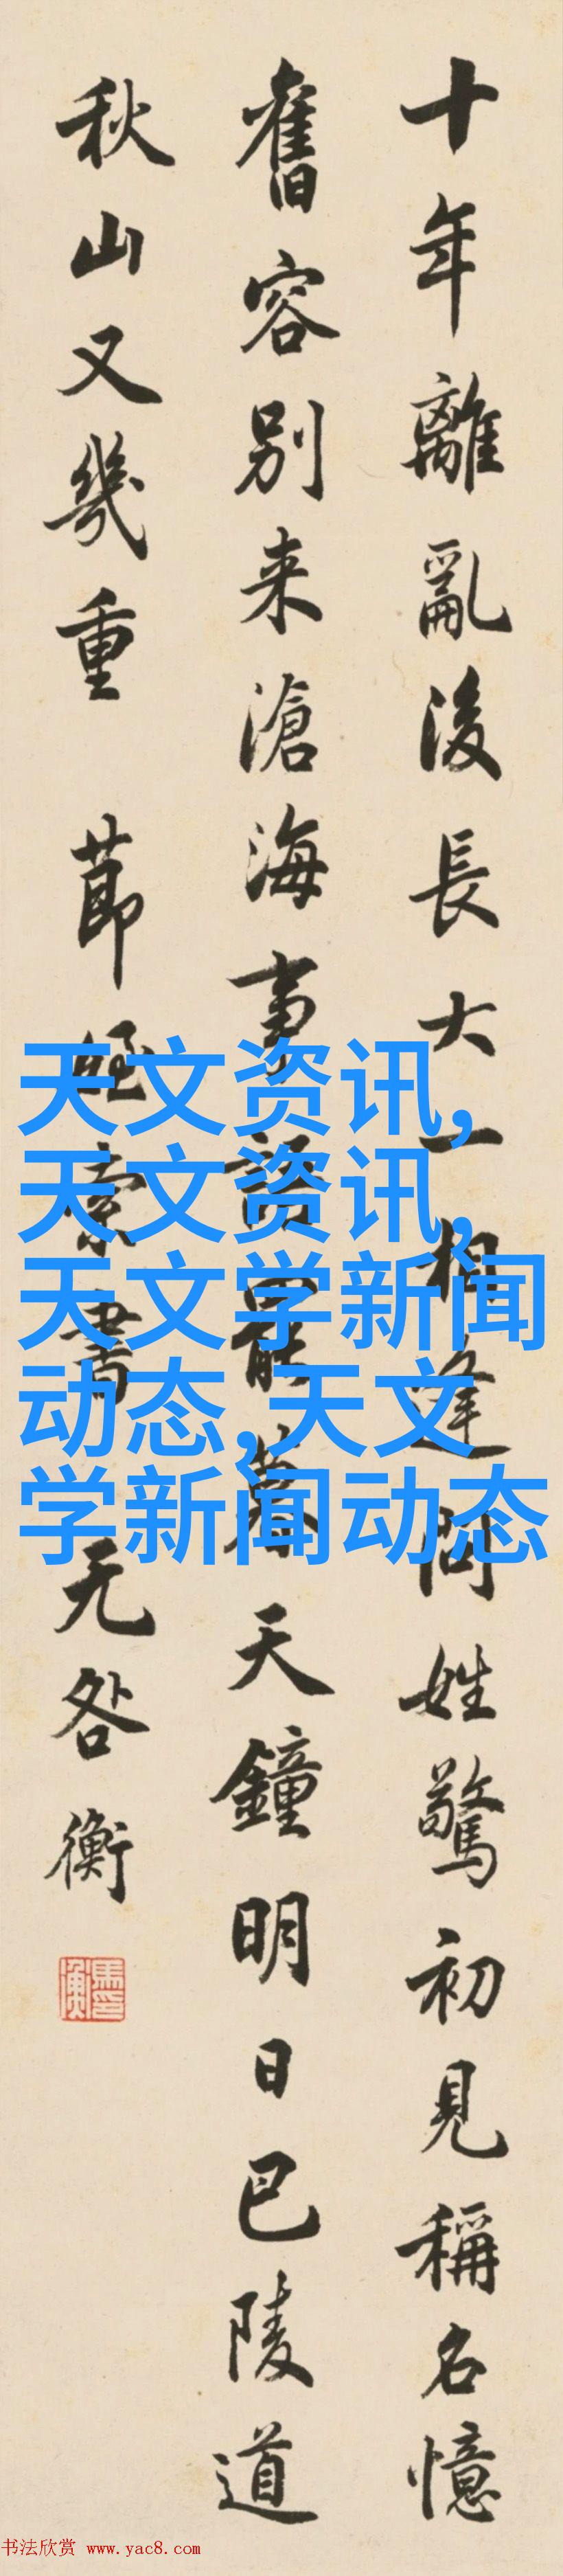 十年離亂後長大一相逢問姓驚初見稱名憶
舊容別来滄海事語罷暮天鐘明日巴陵道
秋山又幾重 莭姪索書 无咎衡
馬衡印
天文资讯,
天文资讯,
天文学新闻
动态,天文
学新闻动态
书法欣赏 www.yac8.com